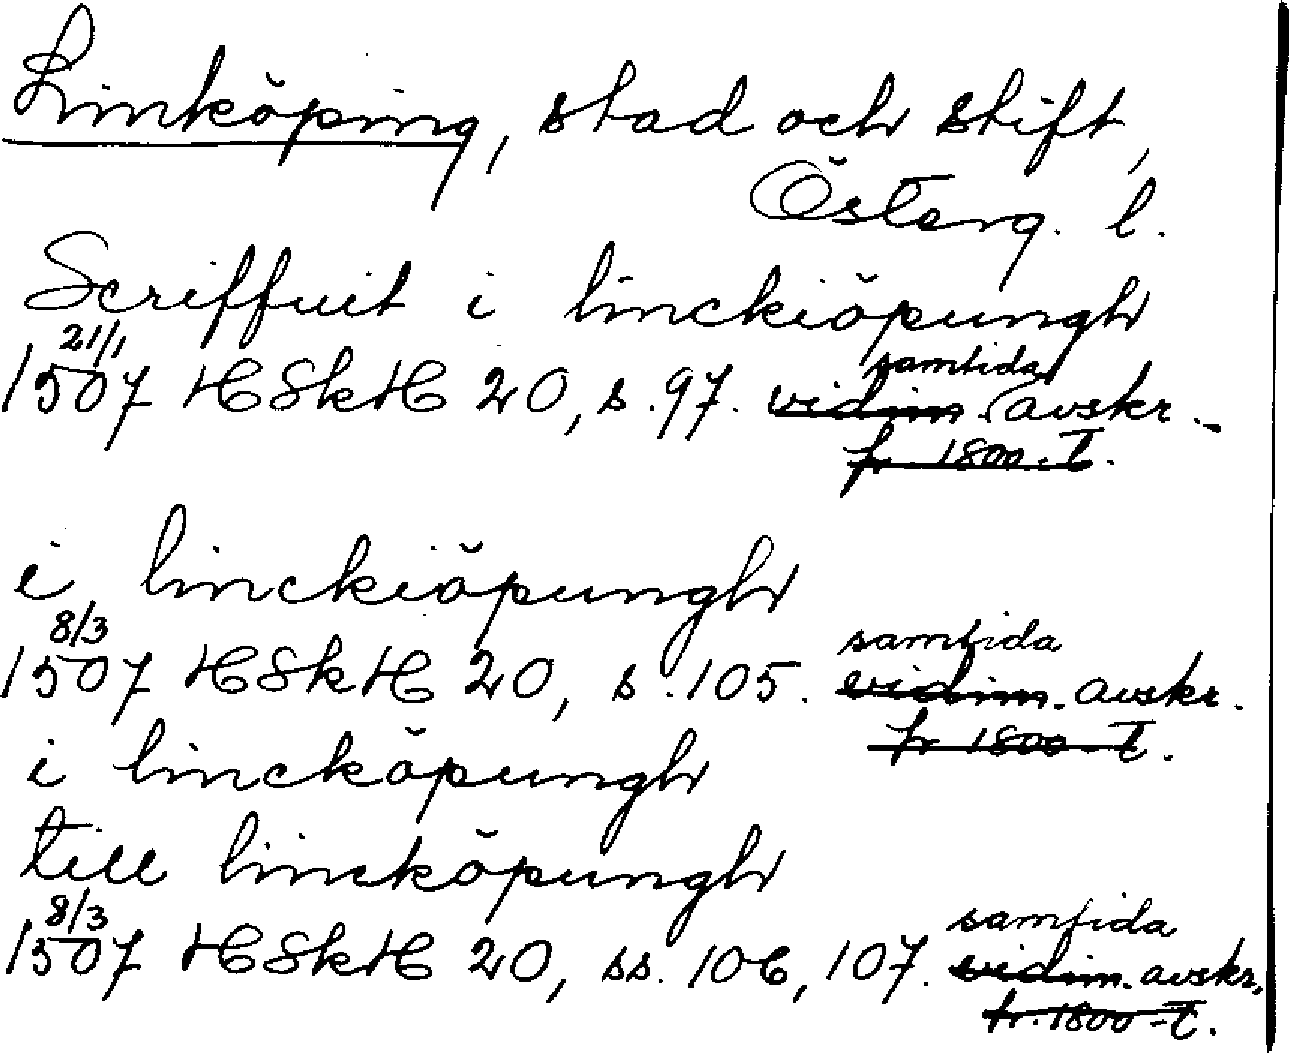 Linköping, stad och stift,
Österg. l.
Scriffuit i linckiöpungh
21/1
1507 HSkH 20, s. 97. vidim. samtida avskr.
fr. 1800-t.
i linckiöpungh
8/3
1507 HSkH 20, s. 105. vidim. samtida avskr.
fr 1800-t.
i lincköpungh
till lincköpungh
8/3
1507 HSkH 20, ss. 106, 107. vidim. samtida avskr.
fr. 1800-t.